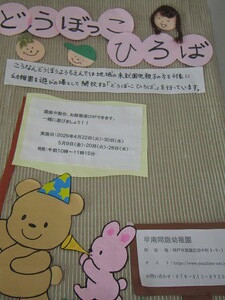 どうぼっこ
ひろば
こうなんどうぼうようちえんでは地域の未就園児親子を対象に
幼稚園を遊びの場として開放する「どうぼっこひろば」を行っています。
一緒に遊びましょう！！
実施日：2025年4月22日(火)・30日(水)
5月9日(金)・20日(火)・28日(水)
時間：午前10時～11時15分
甲南同胞幼稚園